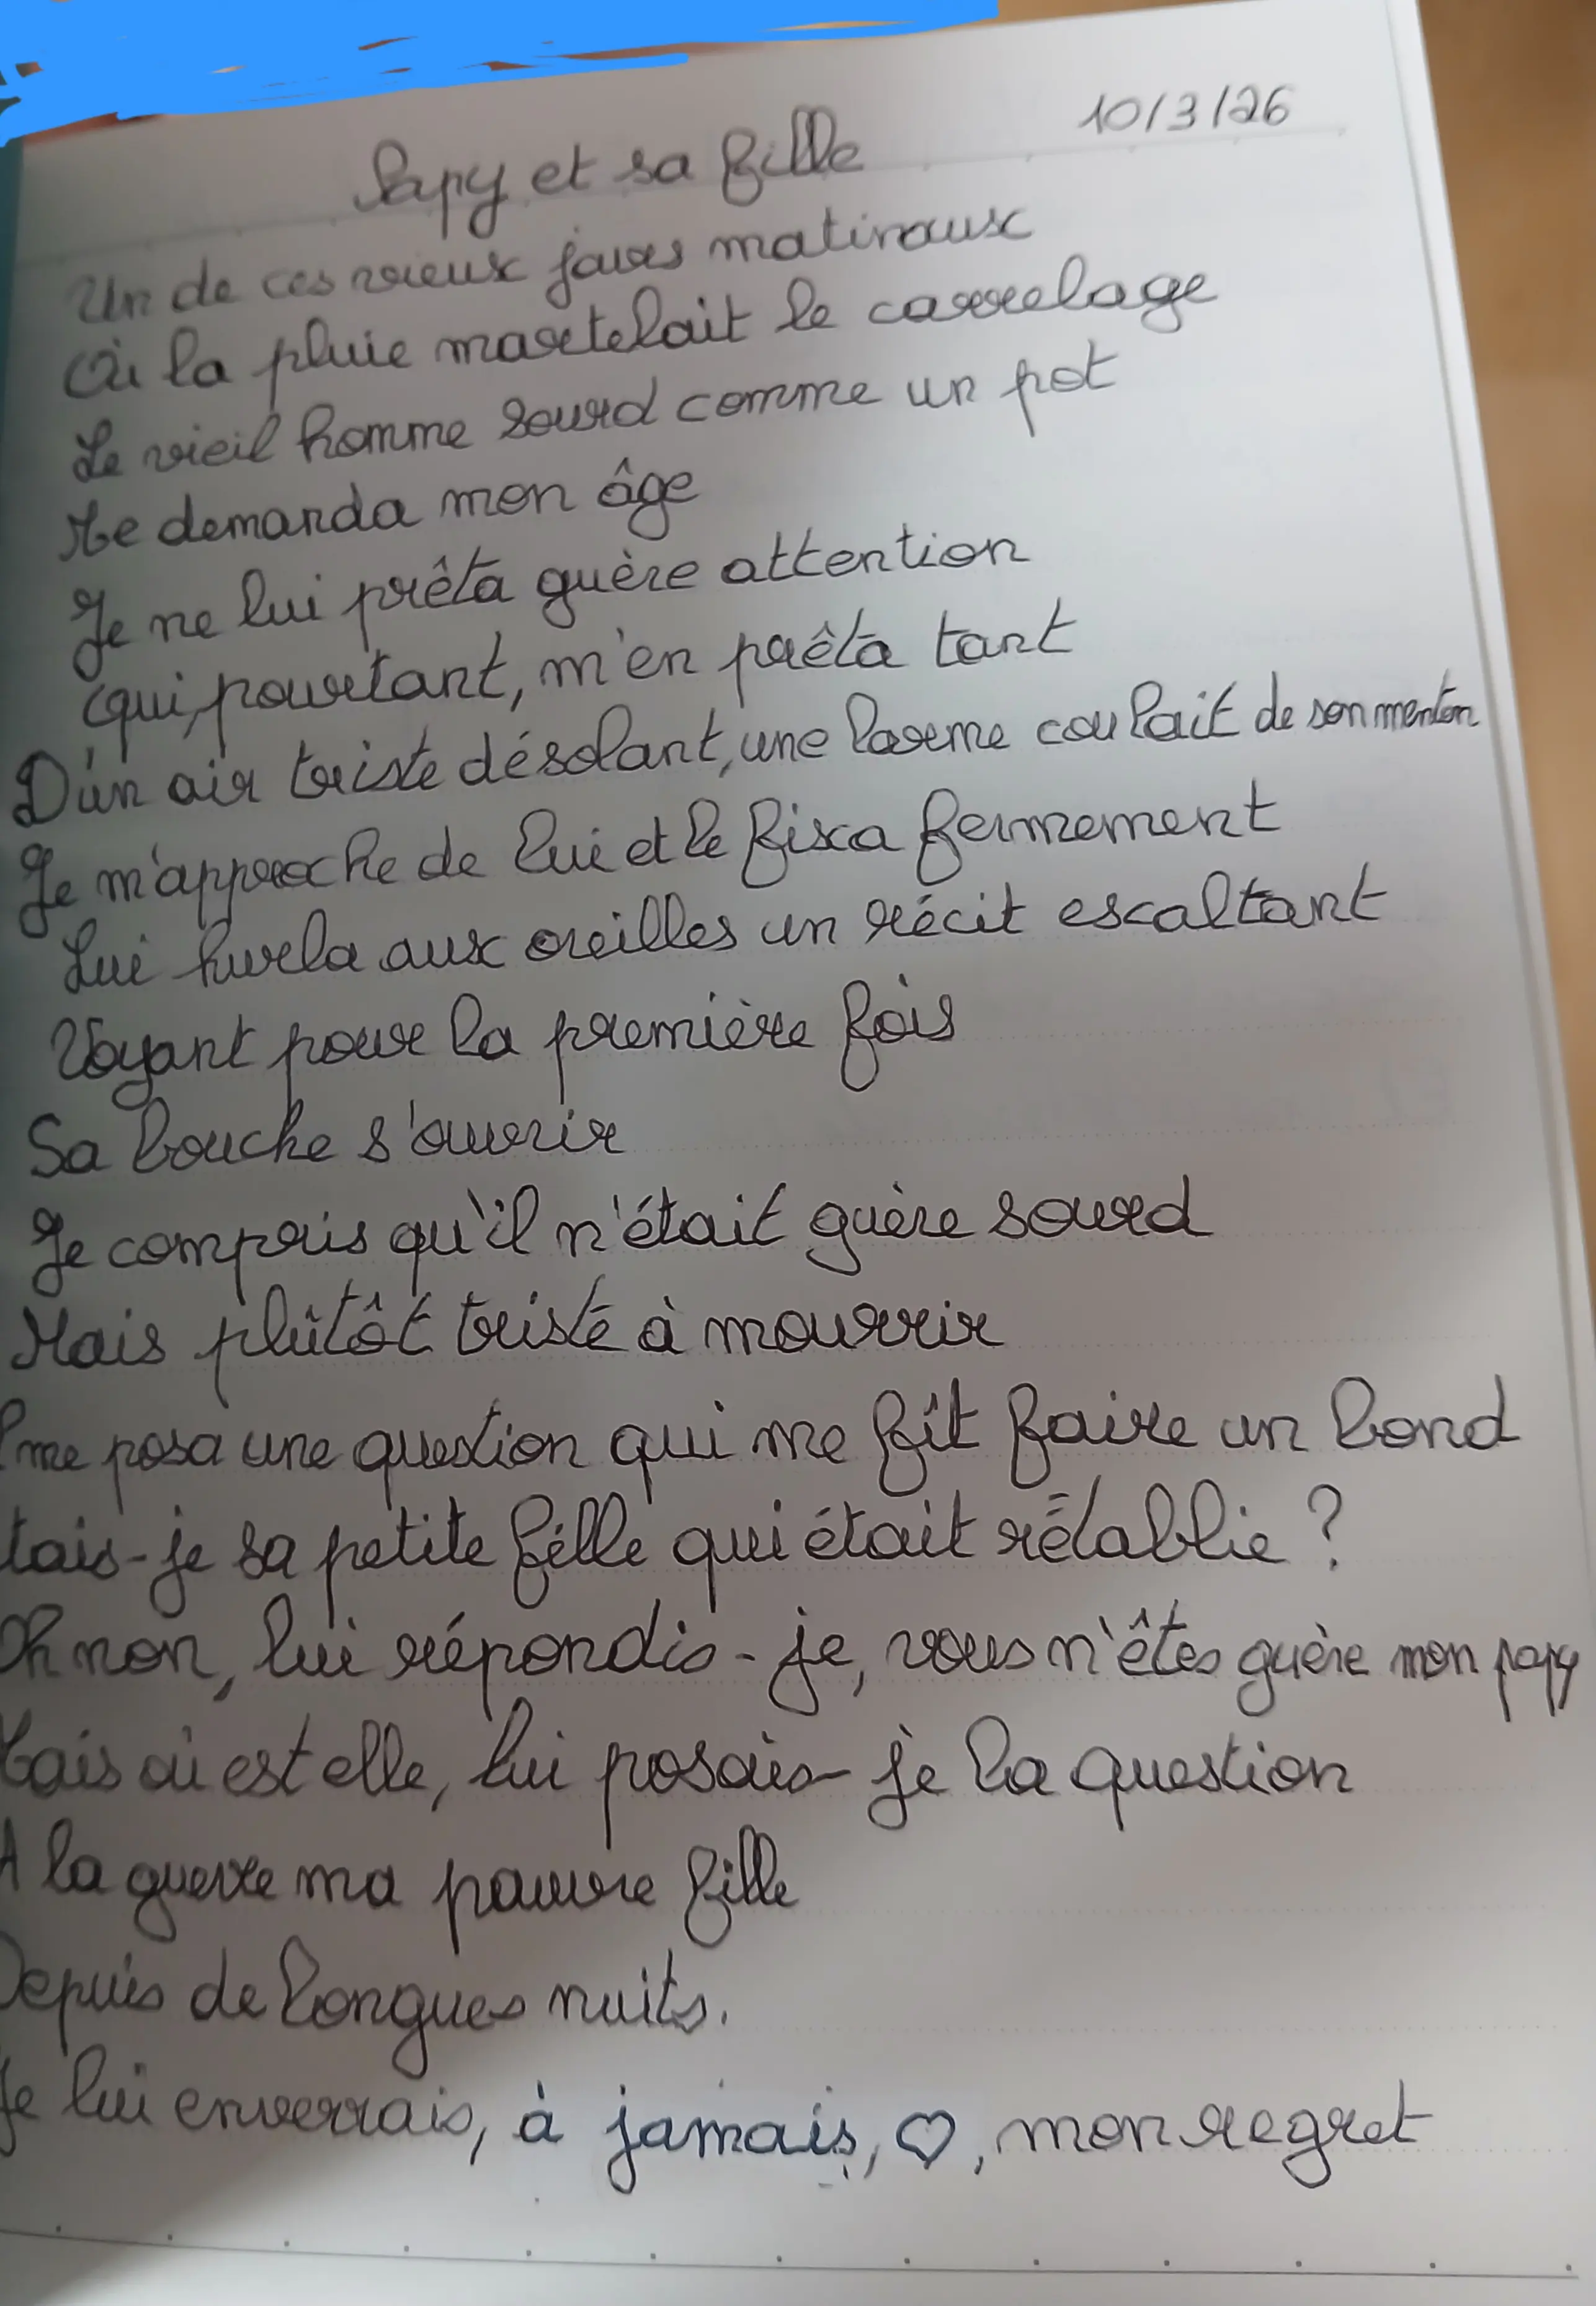 10/3/26
Papy et sa fille
Un de ces vieux jours matinaux
Où la pluie martelait le carrelage
Le vieil homme sourd comme un pot
Me demanda mon âge
Je ne lui prêta guère attention
qui, pourtant, m'en prêta tant
D'un air triste désolant, une larme coulait de son menton
Je m'approche de lui et le fixa fermement
Lui hurla aux oreilles un récit exaltant
Voyant pour la première fois
Sa bouche s'ouvrir
Je compris qu'il n'était guère sourd
Mais plûtôt triste à mourrir
me posa une question qui me fît faire un bond
tais-je sa petite fille qui était rétablie ?
Oh non, lui répondis-je, vous n'êtes guère mon papy
Mais où est elle, lui posais-je la question
A la guerre ma pauvre fille
Depuis de longues nuits.
Je lui enverrais, à jamais, ♡, mon regret